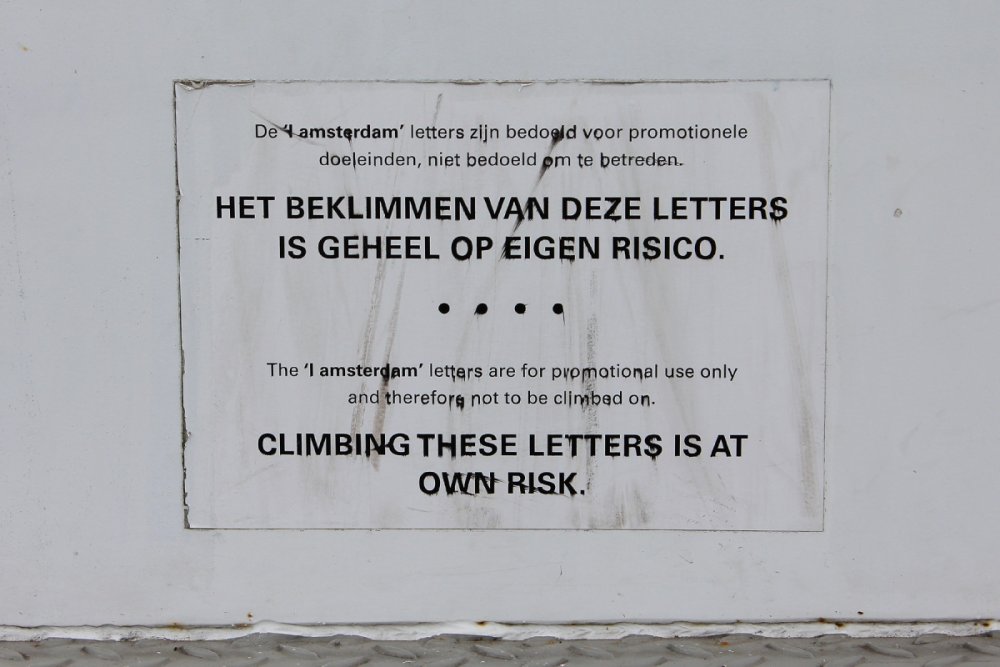 De ‘I amsterdam’ letters zijn bedoeld voor promotionele
doeleinden, niet bedoeld om te betreden.
HET BEKLIMMEN VAN DEZE LETTERS
IS GEHEEL OP EIGEN RISICO.
• • • •
The ‘I amsterdam’ letters are for promotional use only
and therefore not to be climbed on.
CLIMBING THESE LETTERS IS AT
OWN RISK.